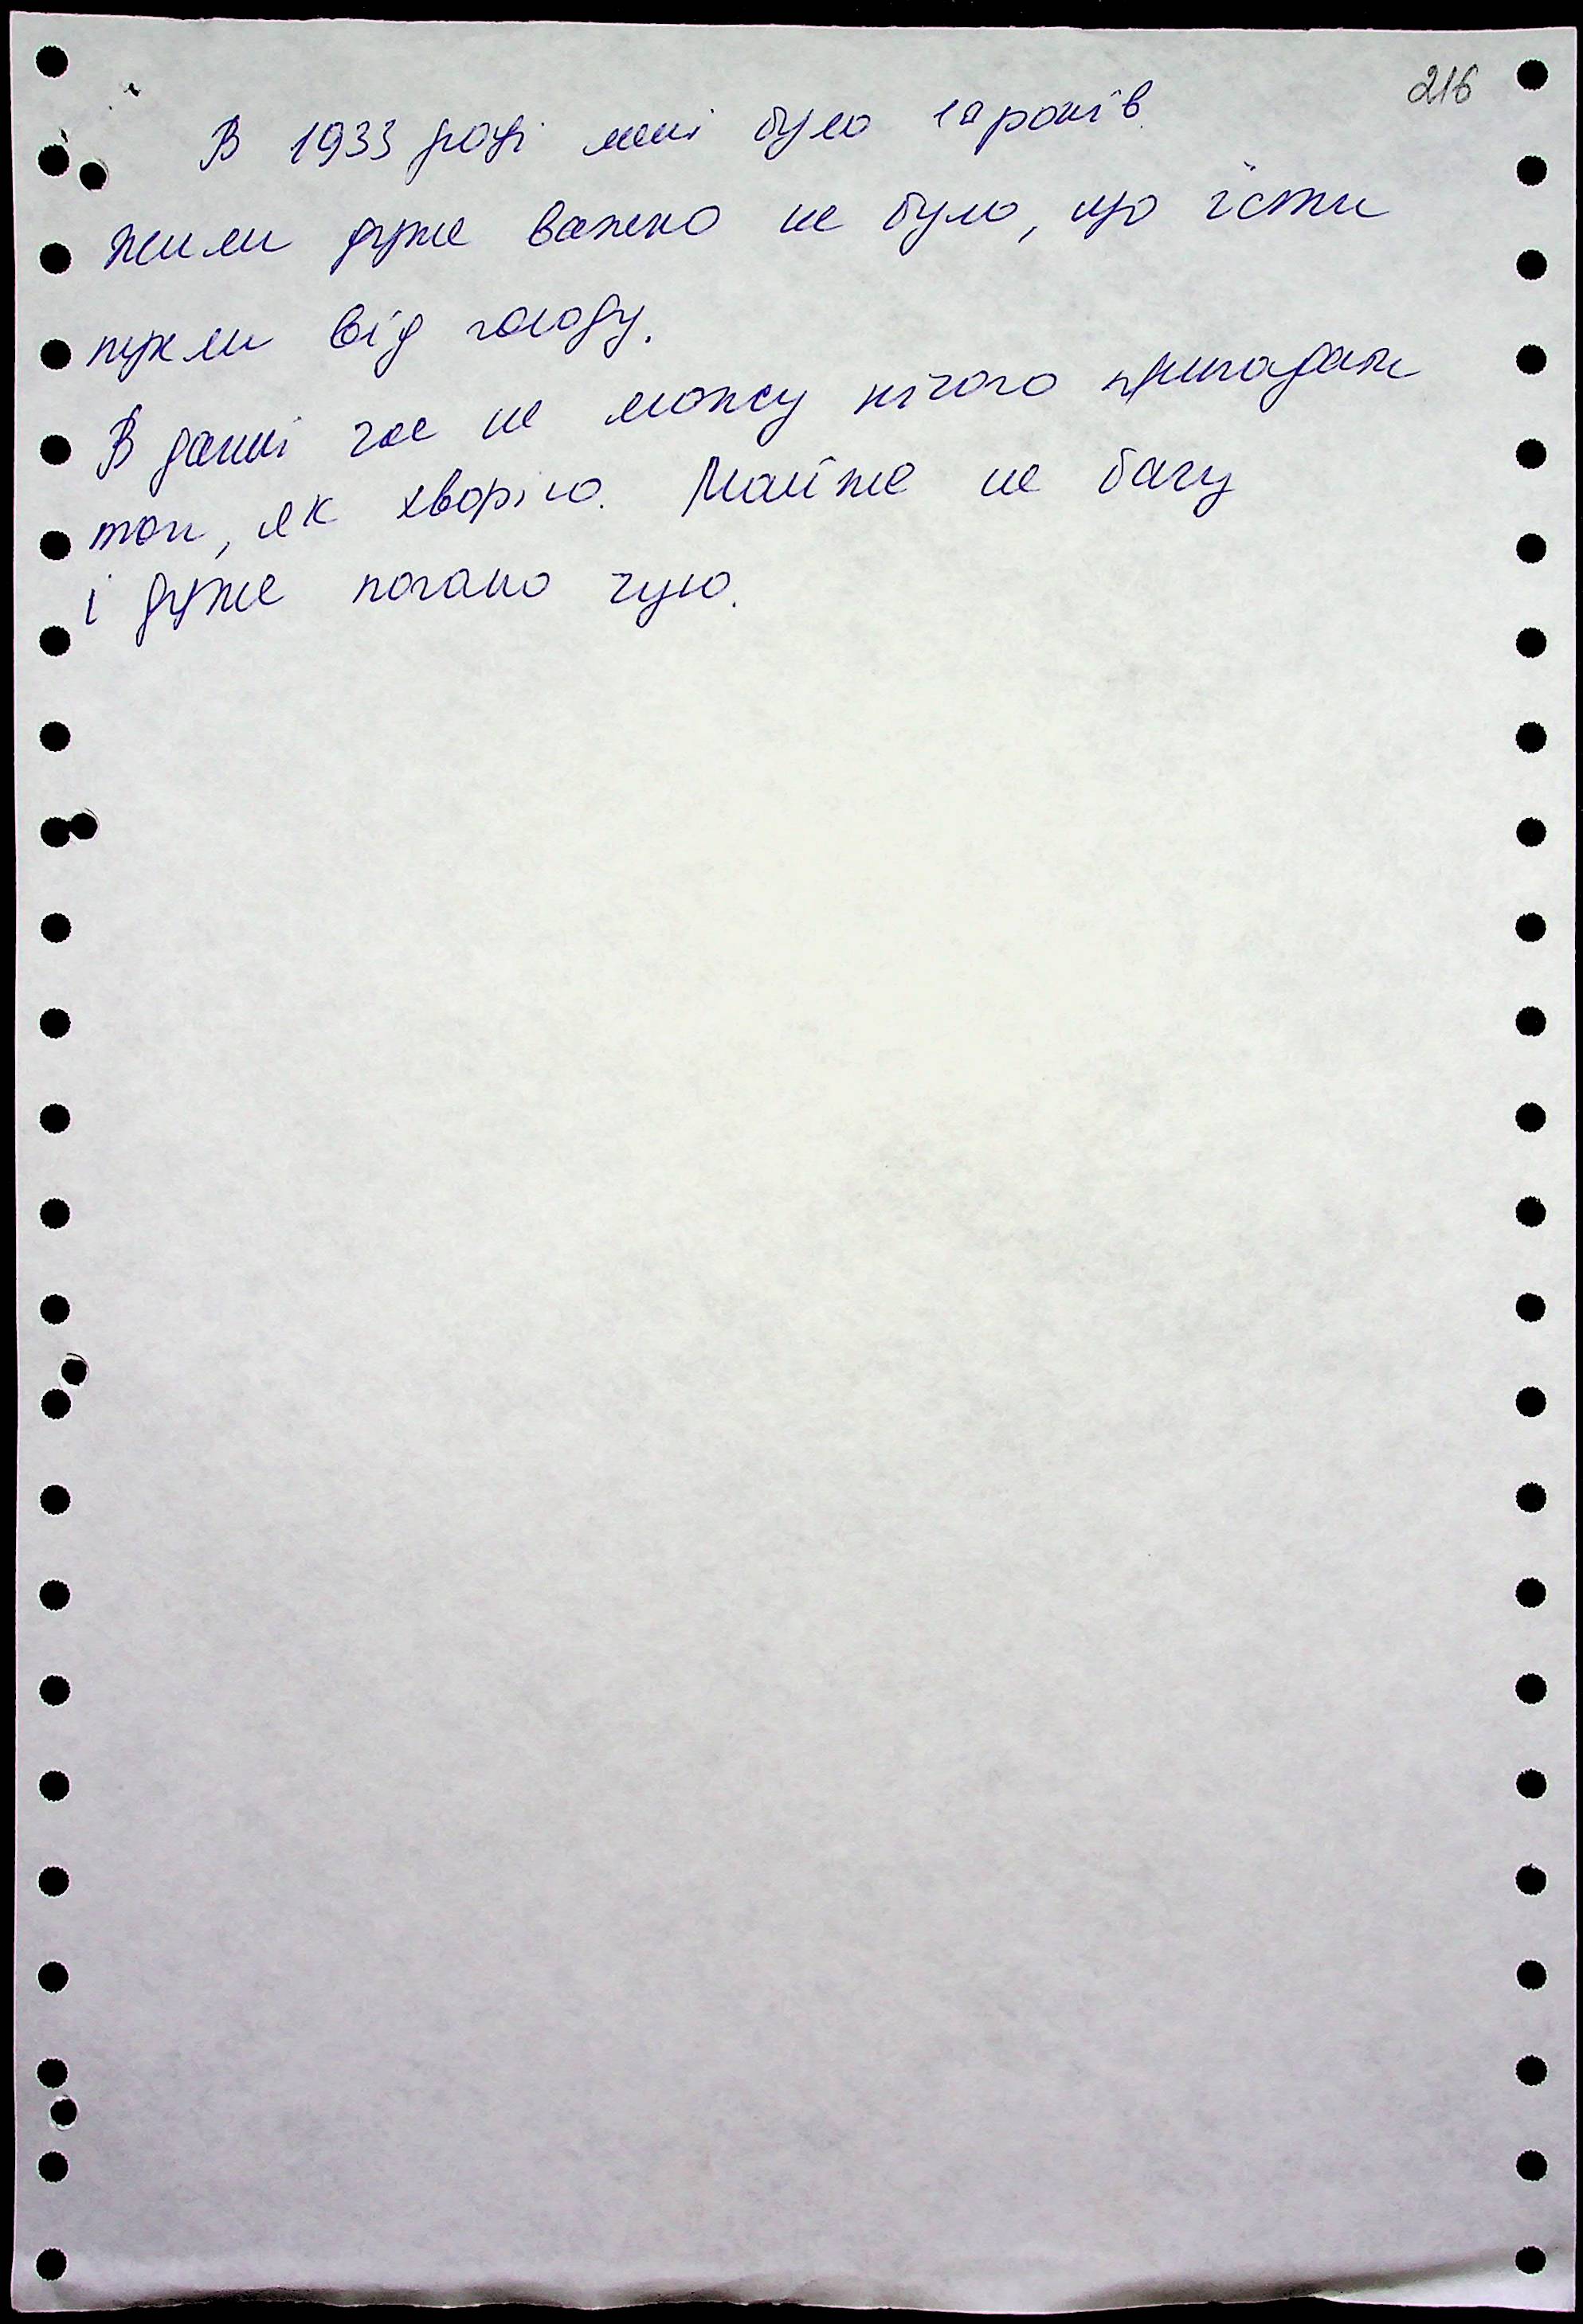 216
В 1933 році мені було 10 років.
жили дуже важко не було, що їсти
пухли від голоду.
В данні час не можу нічого пригадати
топ, як хворію. Майже не бачу
і дуже погано чую.